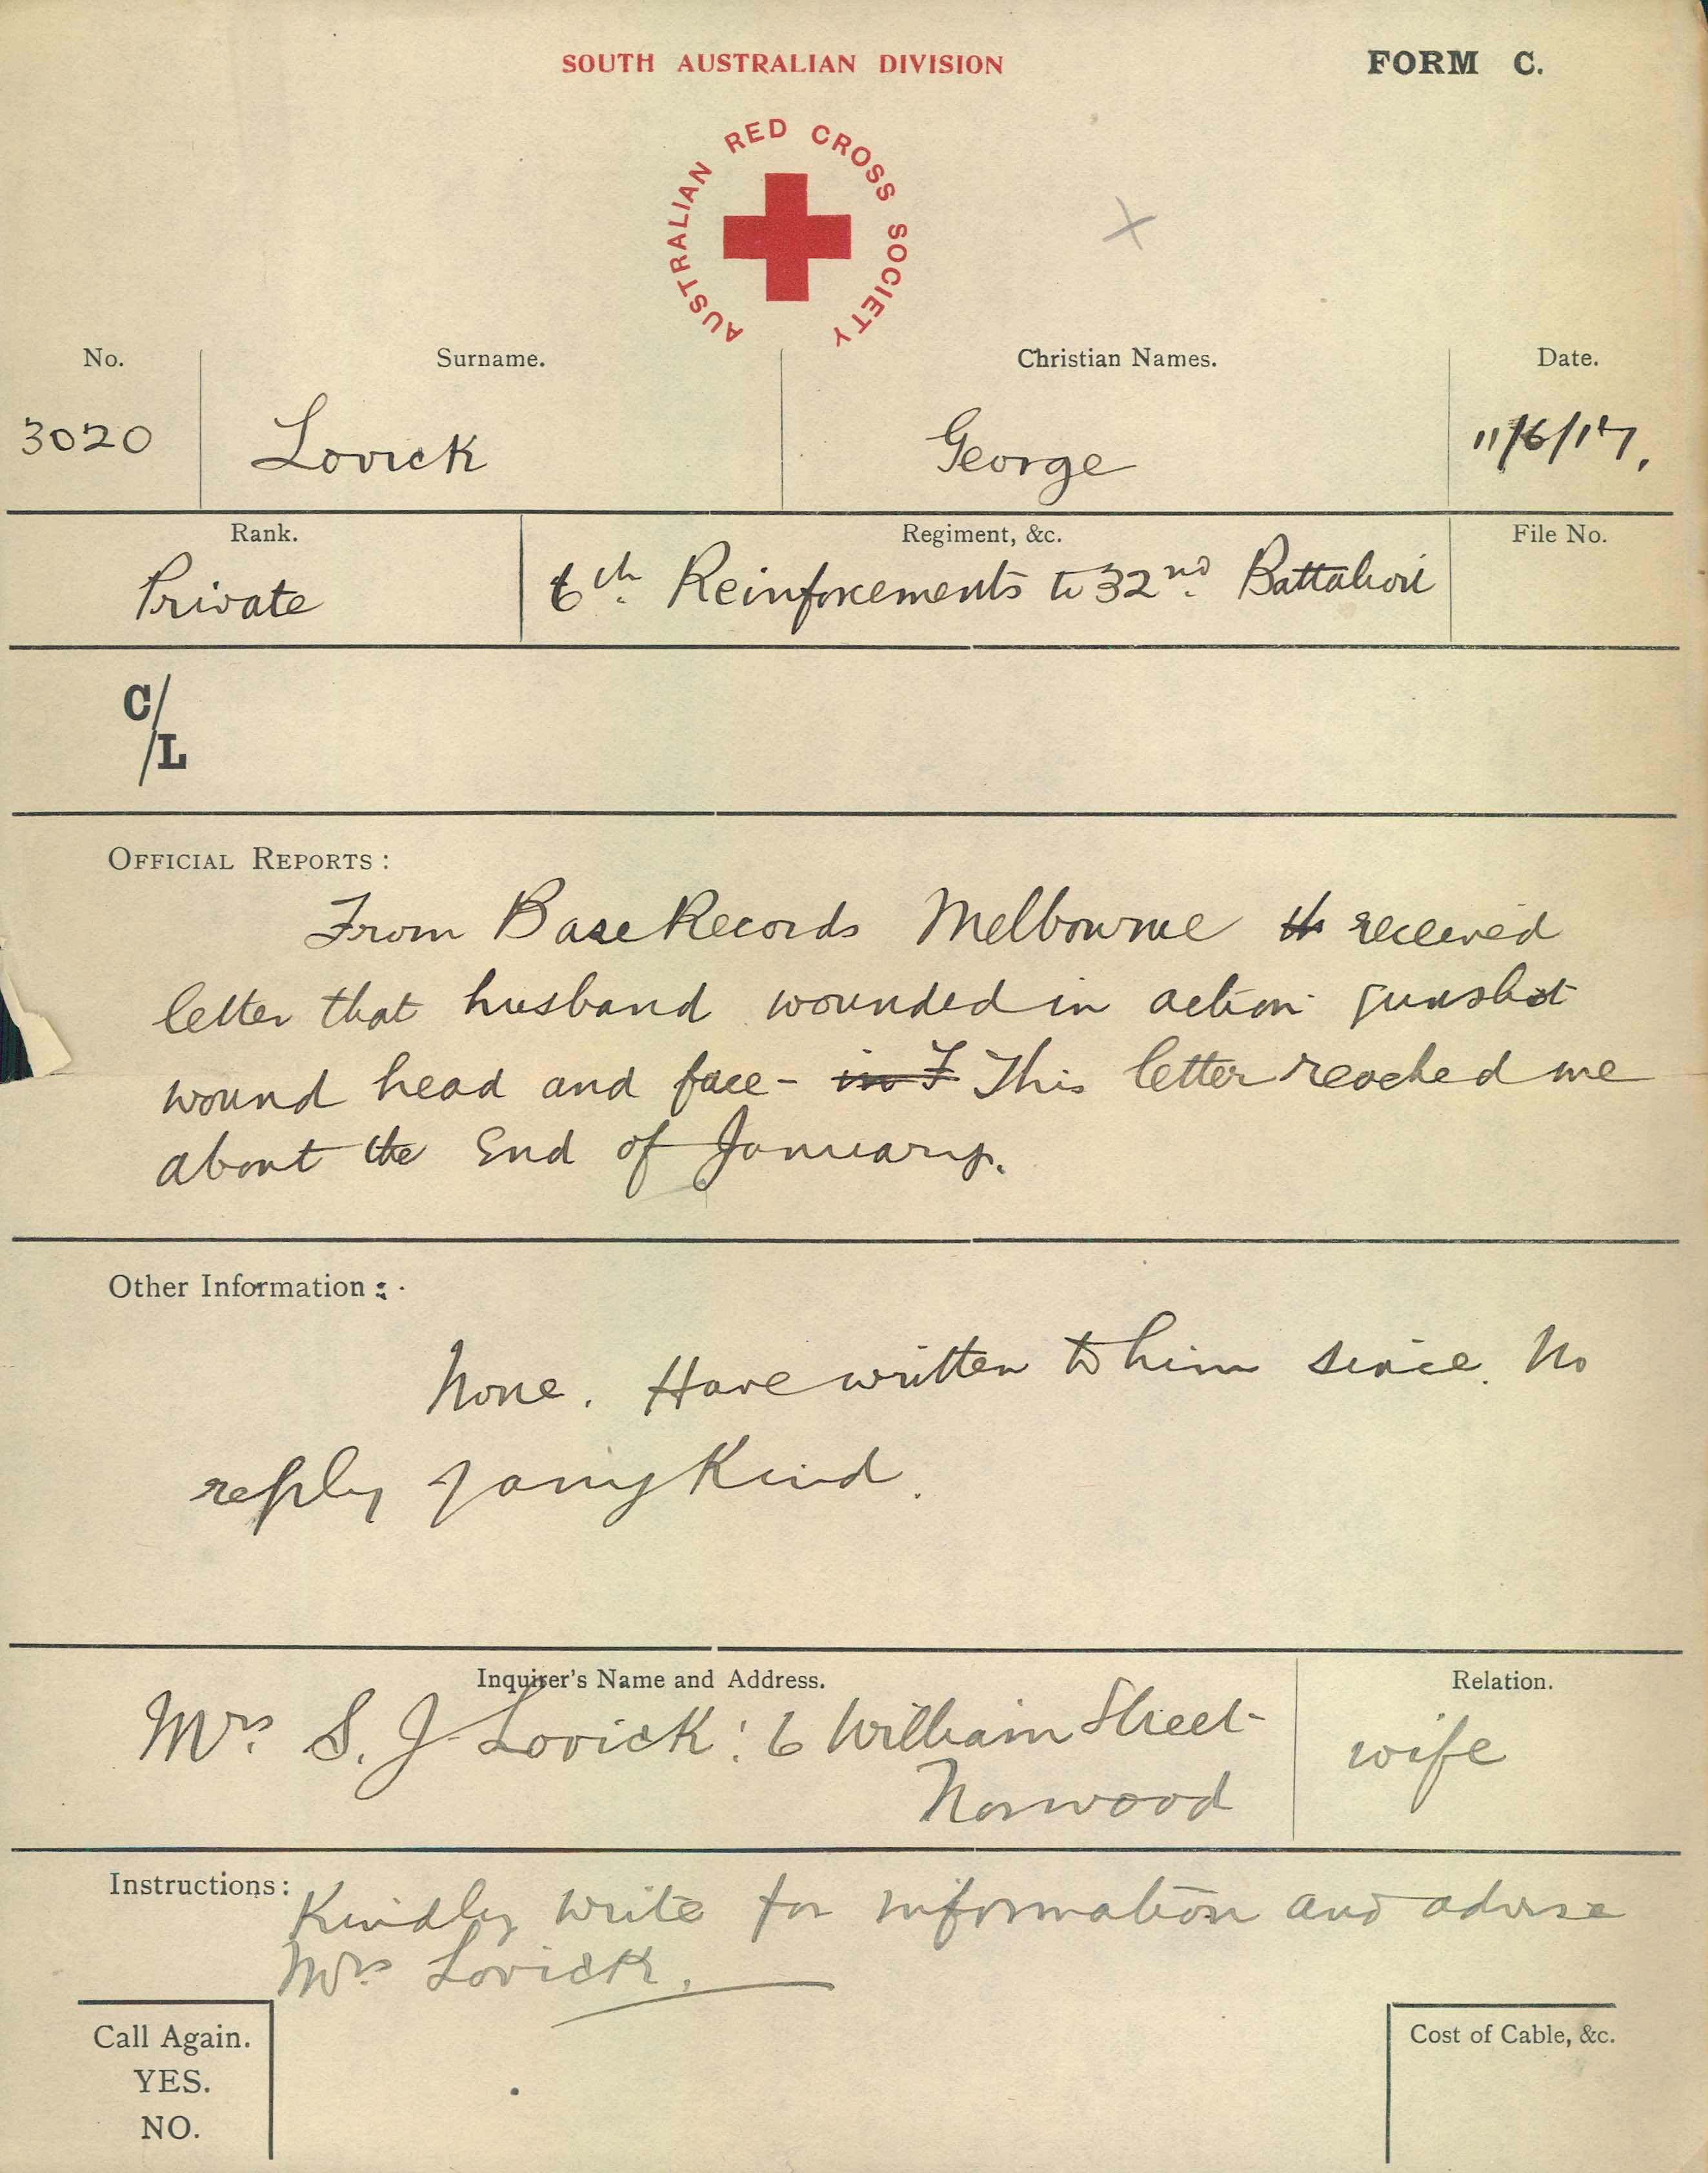 SOUTH AUSTRALIAN DIVISION
FORM C.
AUSTRALIAN RED CROSS SOCIETY
No. Surname. Christian Names. Date.
3020 Lovick George 11/6/17.
Rank. Regiment, &c. File No.
Private 6th. Reinforcements to 32nd. Battalion
C/
/L
OFFICIAL REPORTS:
From Base Records Melbourne th received
letter that husband wounded in action gunshot
wound head and face - in F This letter reached me
about the End of January.
Other Information:
None. Have written to him since. No
reply of any Kind.
Inquirer's Name and Address. Relation.
Mrs. S. J Lovick: 6 William Street wife
Norwood
Instructions:
Kindly write for information and advise
Mrs Lovick.
Call Again.
YES.
NO.
Cost of Cable, &c.